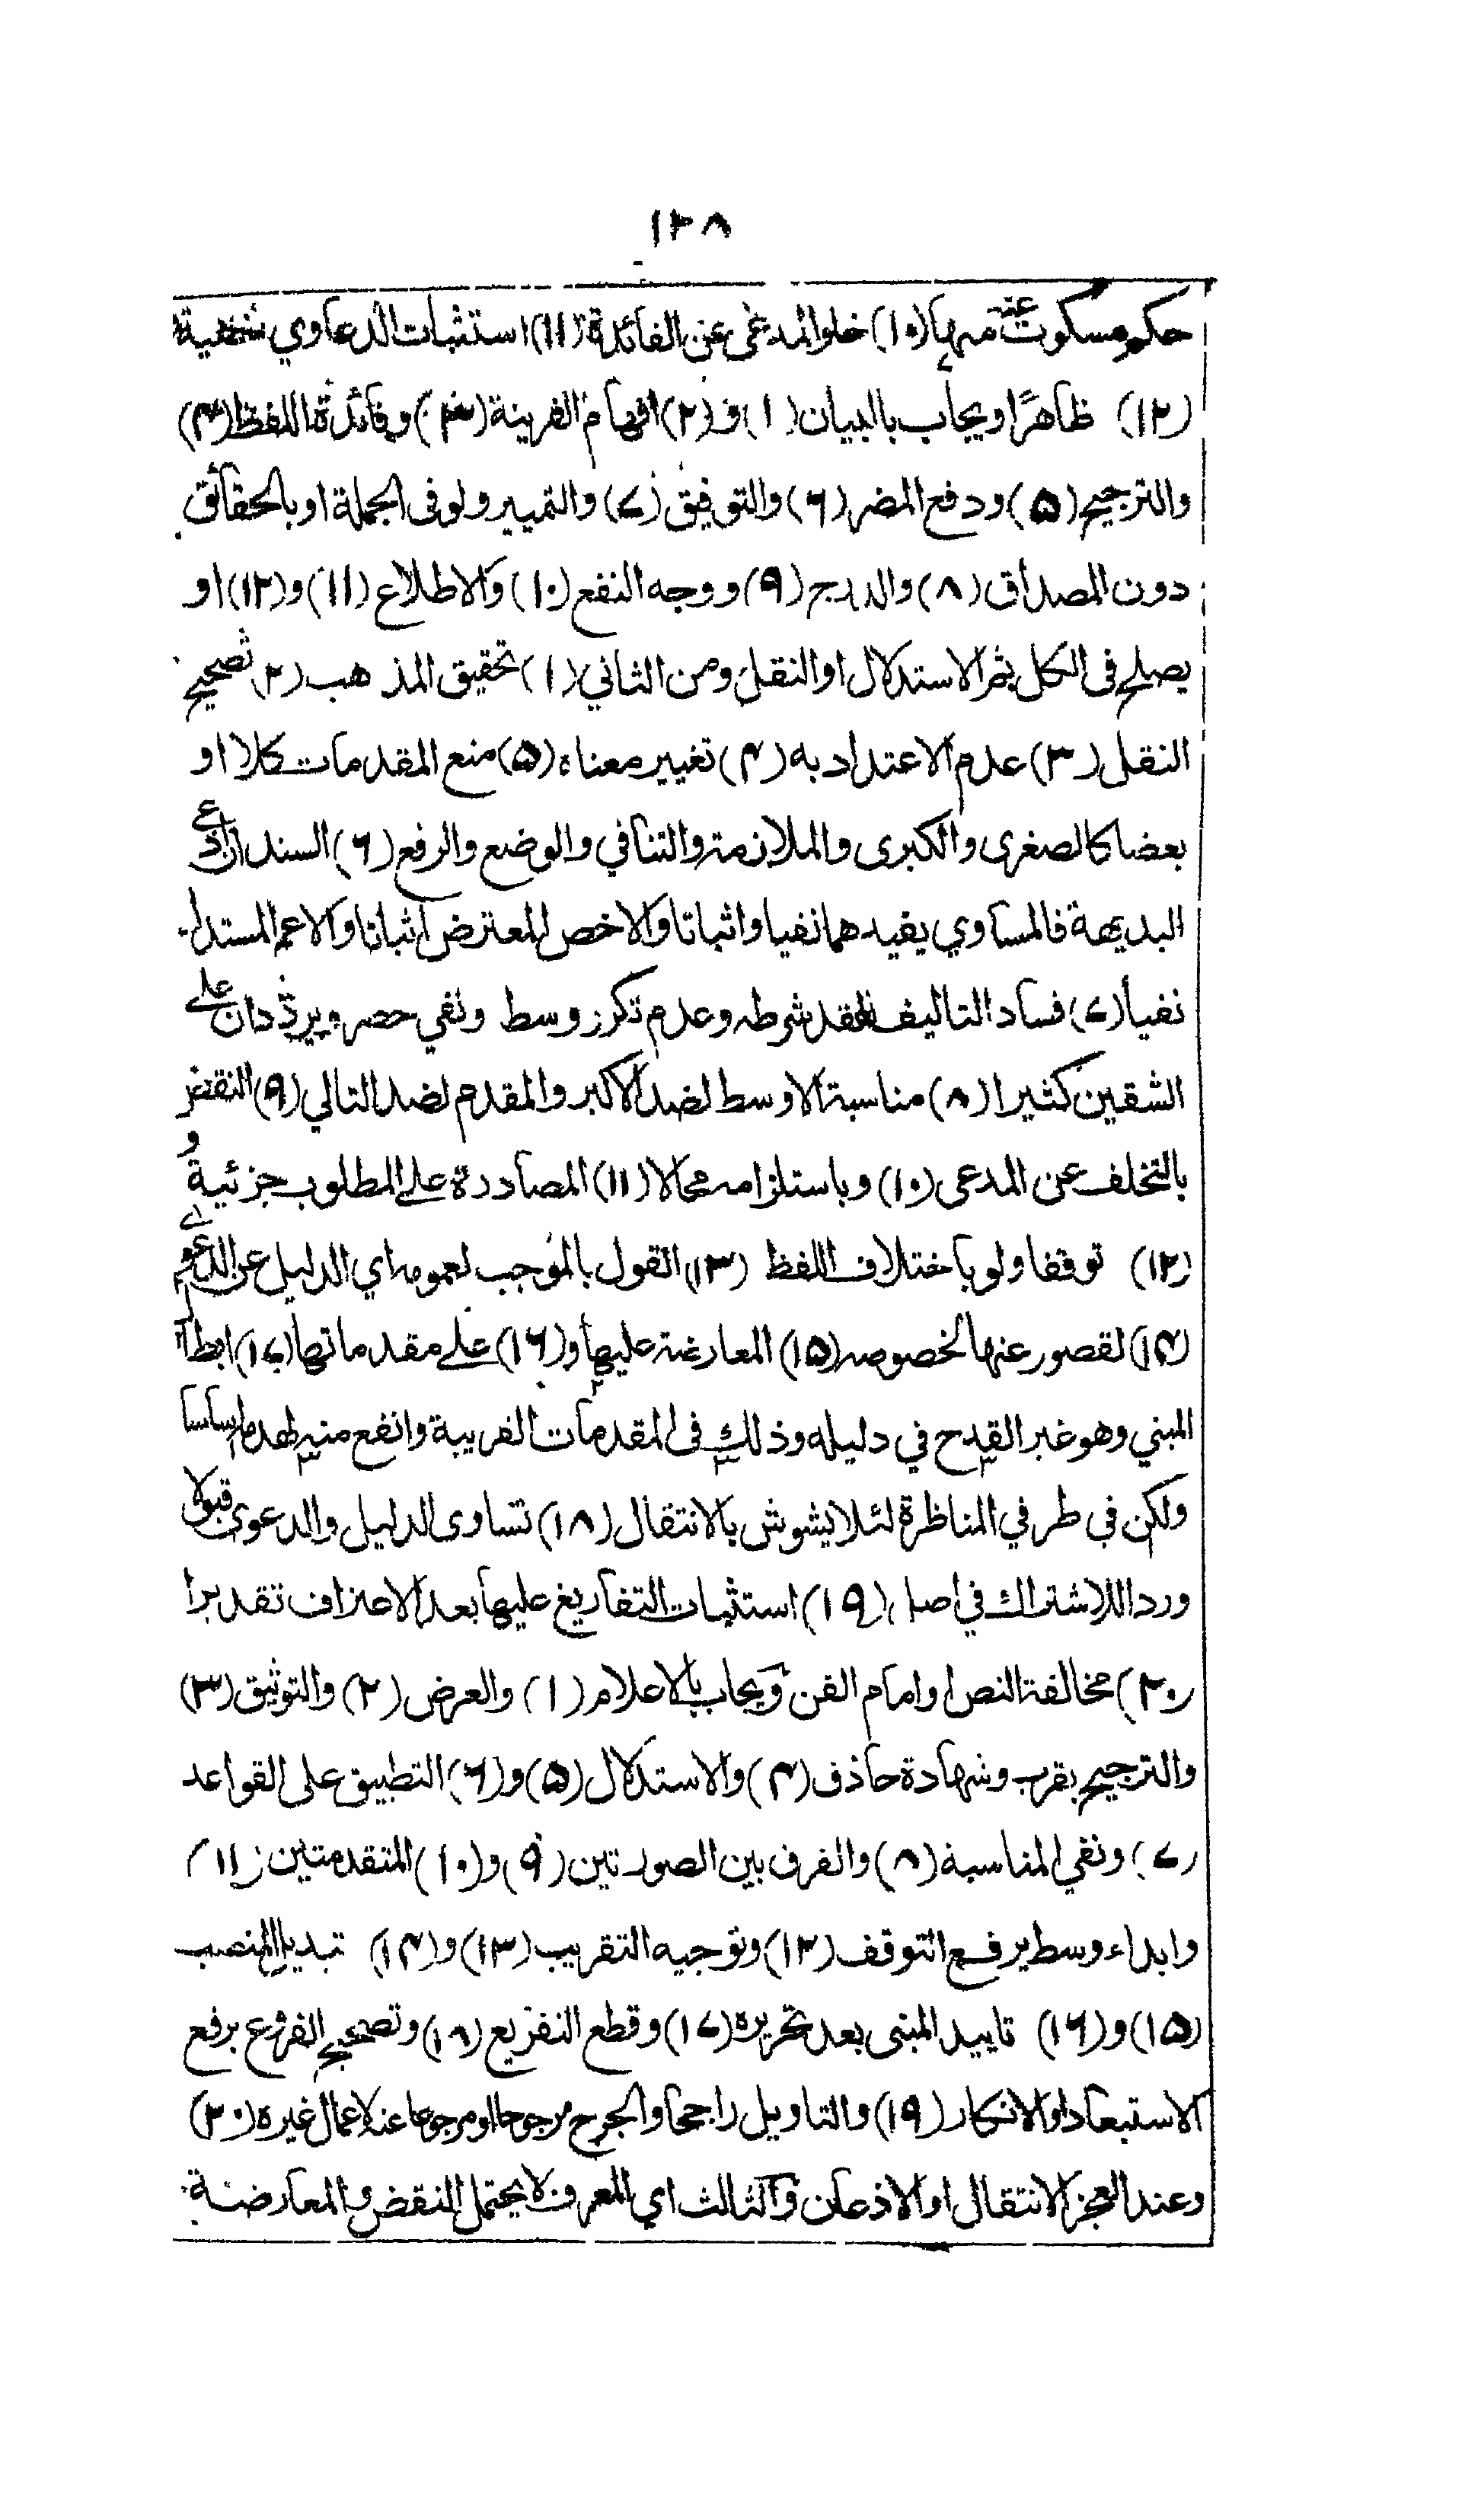 ١٢٨
حكم مسكوت عنه منها (١٠) خلو المدعى عن الفائدة (١١) استثبات الدعاوي خفية
(١٢) ظاهرًا ويجاب بالبيان (١) و (٢) افهام القرينة (٣) وفائدة اللفظ (٤)
والترجيح (۵) ودفع المضر (۶) والتوفيق (٧) والتميير ولو في الجملة او بالحقائق
دون المصداق (٨) والدرج (٩) ووجه النفع (١٠) والاطلاع (١١) و (١٢) او
يصلح في الكل ثم الاستدلال او النقل ومن الثاني (١) تحقيق المذهب (٢) تصحيح
النقل (٣) عدم الاعتداد به (۴) تغيير معناه (۵) منع المقدمات كلا او
بعضا كالصغرى والكبرى والملازمة والتنافي والوضع والرفع (۶) السند ان ادعى
البديهة فالمساوي يفيدهما نفيا واثباتا والاخص المعترض اثباتا والاعم المستدل
نفيا (٧) فساد التاليف لفقد شرطه وعدم تكرر وسط ونفي حصر ويردان على
الشقين كثيرا (٨) مناسبة الاوسط لضد الاكبر والمقدم لضد التالي (٩) النقض
بالتخلف عن المدعى (١٠) وباستلزامه محالا (١١) المصادرة على المطلوب جزئية و
(١٢) توقفا ولو باختلاف اللفظ (١٣) القول بالموجب لعمومه اي الدليل عن الدعوى
(١۴) لقصور عنها لخصوصه (١۵) المعارضة عليها و (١۶) على مقدماتها (١٧) ابطال
المبني وهو غير القدح في دليله وذلك في المقدمات القريبة وانفع منه لهدم اساسا
ولكن في طرفي المناظرة لئلا يشوش بالانتقال (١٨) تساوى الدليل والدعوى قبولا
وردا للاشتراك في اصل (١٩) استثبات التفاريع عليها بعد الاعتراف تقديرا
(٢٠) مخالفة النص او امام الفن ويجاب بالاعلام (١) والعرض (٢) والتوثيق (٣)
والترجيح بقرب وشهادة حاذق (۴) والاستدلال (۵) و (۶) التطبيق على القواعد
(٧) ونفي المناسبة (٨) والفرق بين الصورتين (٩) و (١٠) المتقدمتين (١١)
وابداء وسط يرفع التوقف (١٢) وتوجيه التقريب (١٣) و (١۴) تبديل المنصب
(١۵) و (١۶) تاييد المبنى بعد تحريره (١٧) وقطع التفريع (١٨) وتصحيح الفروع برفع
الاستبعاد او الانكار (١٩) والتاويل راجحا والجرح مرجوحا او مرجوعا عنه لاعمال غيره (٢٠)
وعند العجز الانتقال او الاذعان والثالث اي المعرف لا يحتمل النقض والمعارضة